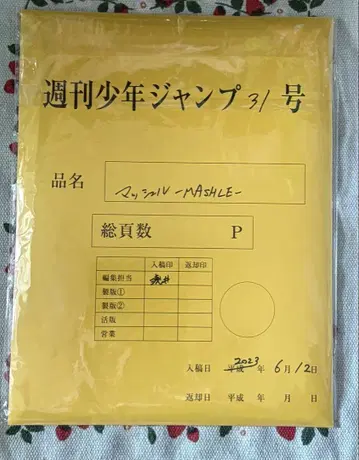 週刊少年ジャンプ31号
品名 マッシュル-MASHLE-
総頁数 P
入稿印 返却印
編集担当
製版①
製版②
活版
営業
入稿日 平成 2023 年 6月12日
返却日 平成 年 月 日